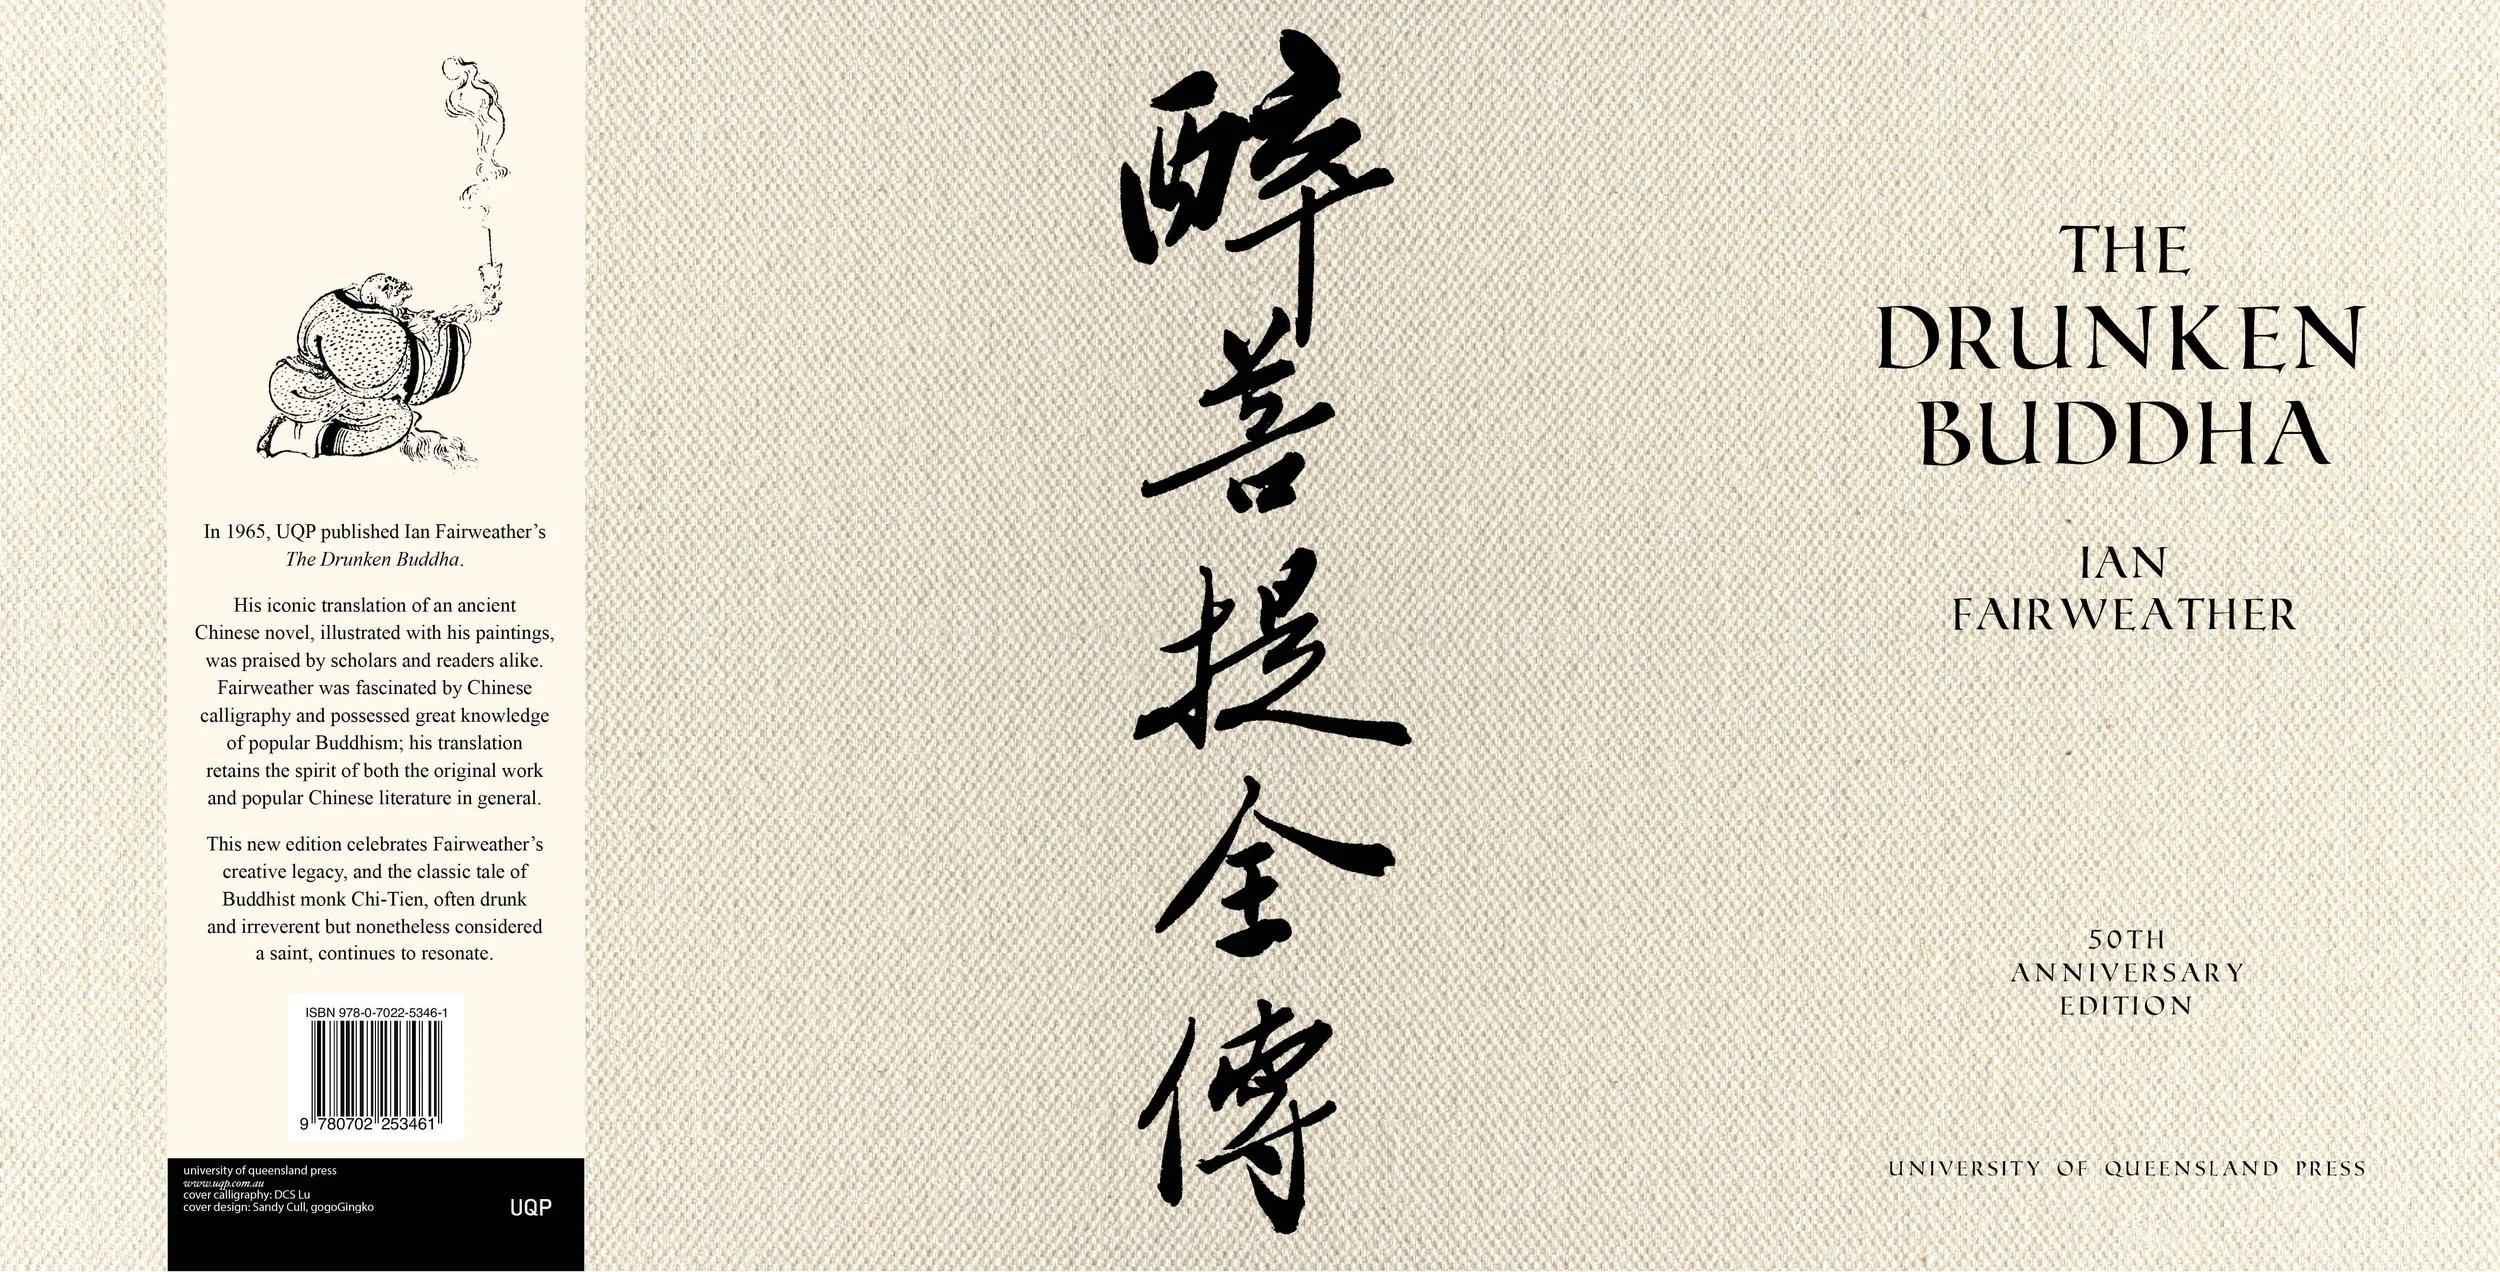 In 1965, UQP published Ian Fairweather’s
The Drunken Buddha.
His iconic translation of an ancient
Chinese novel, illustrated with his paintings,
was praised by scholars and readers alike.
Fairweather was fascinated by Chinese
calligraphy and possessed great knowledge
of popular Buddhism; his translation
retains the spirit of both the original work
and popular Chinese literature in general.
This new edition celebrates Fairweather’s
creative legacy, and the classic tale of
Buddhist monk Chi-Tien, often drunk
and irreverent but nonetheless considered
a saint, continues to resonate.
ISBN 978-0-7022-5346-1
9 780702 253461
university of queensland press
www.uqp.com.au
cover calligraphy: DCS Lu
cover design: Sandy Cull, gogoGingko
UQP
醉菩提全傳
THE
DRUNKEN
BUDDHA
IAN
FAIRWEATHER
50TH
ANNIVERSARY
EDITION
UNIVERSITY OF QUEENSLAND PRESS